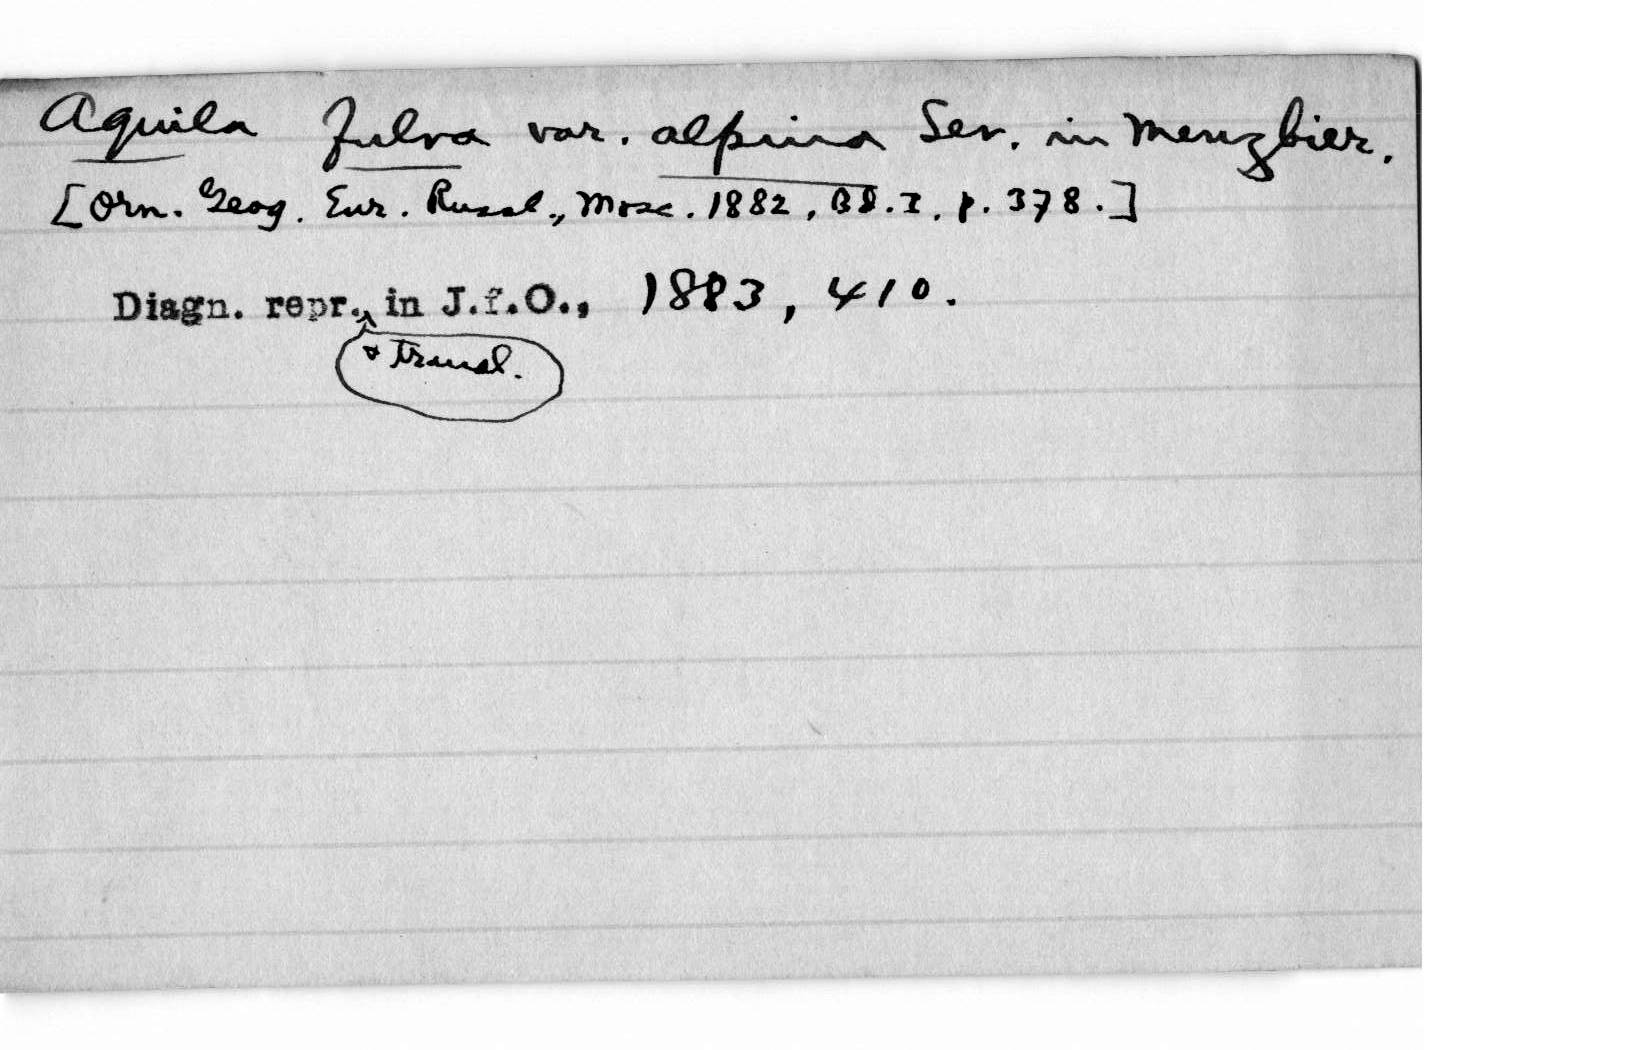 Aquila fulva var. alpina Sev. in Menzbier.
[Orn. Geog. Eur. Russl., Mosc. 1882, Bd. I, p. 378.]
Diagn. repr., in J.f.O., 1883, 410.
& transl.